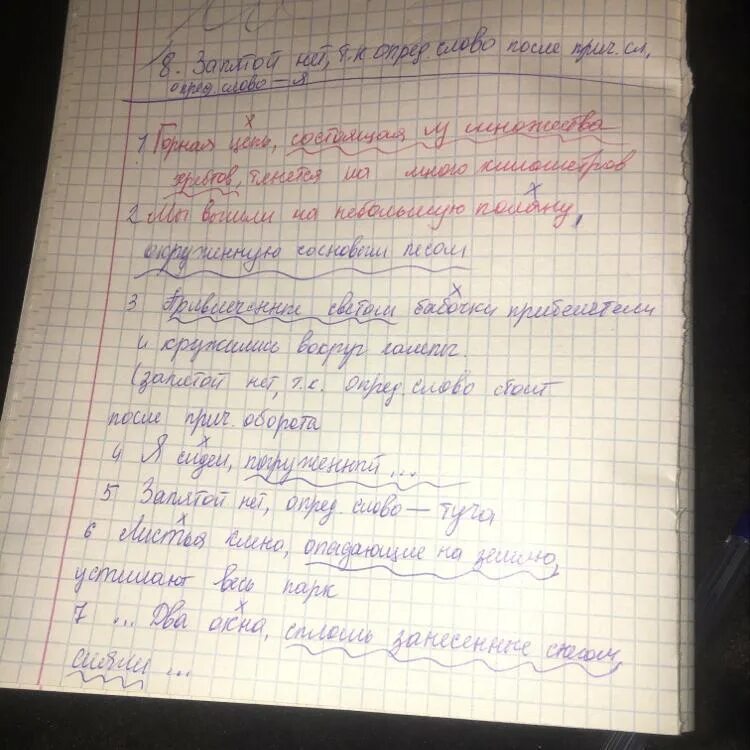 8. Запятой нет, т.к опред. слово после прич. сл,
опред. слово — я
1 Горная цепь, состоящая из множества
хребтов, тянется на много километров
2 Мы вышли на небольшую поляну,
окруженную сосновым лесом
3 Привлеченные светом бабочки прилетели
и кружились вокруг лампы.
(запятой нет, т.к. опред. слово стоит
после прич. оборота
4 Я сидел, погруженный ...
5 Запятой нет, опред. слово — туча
6 Листья клена, опадающие на землю,
устилают весь парк
7 ... Два окна, сплошь занесенные снегом,
сияли ...